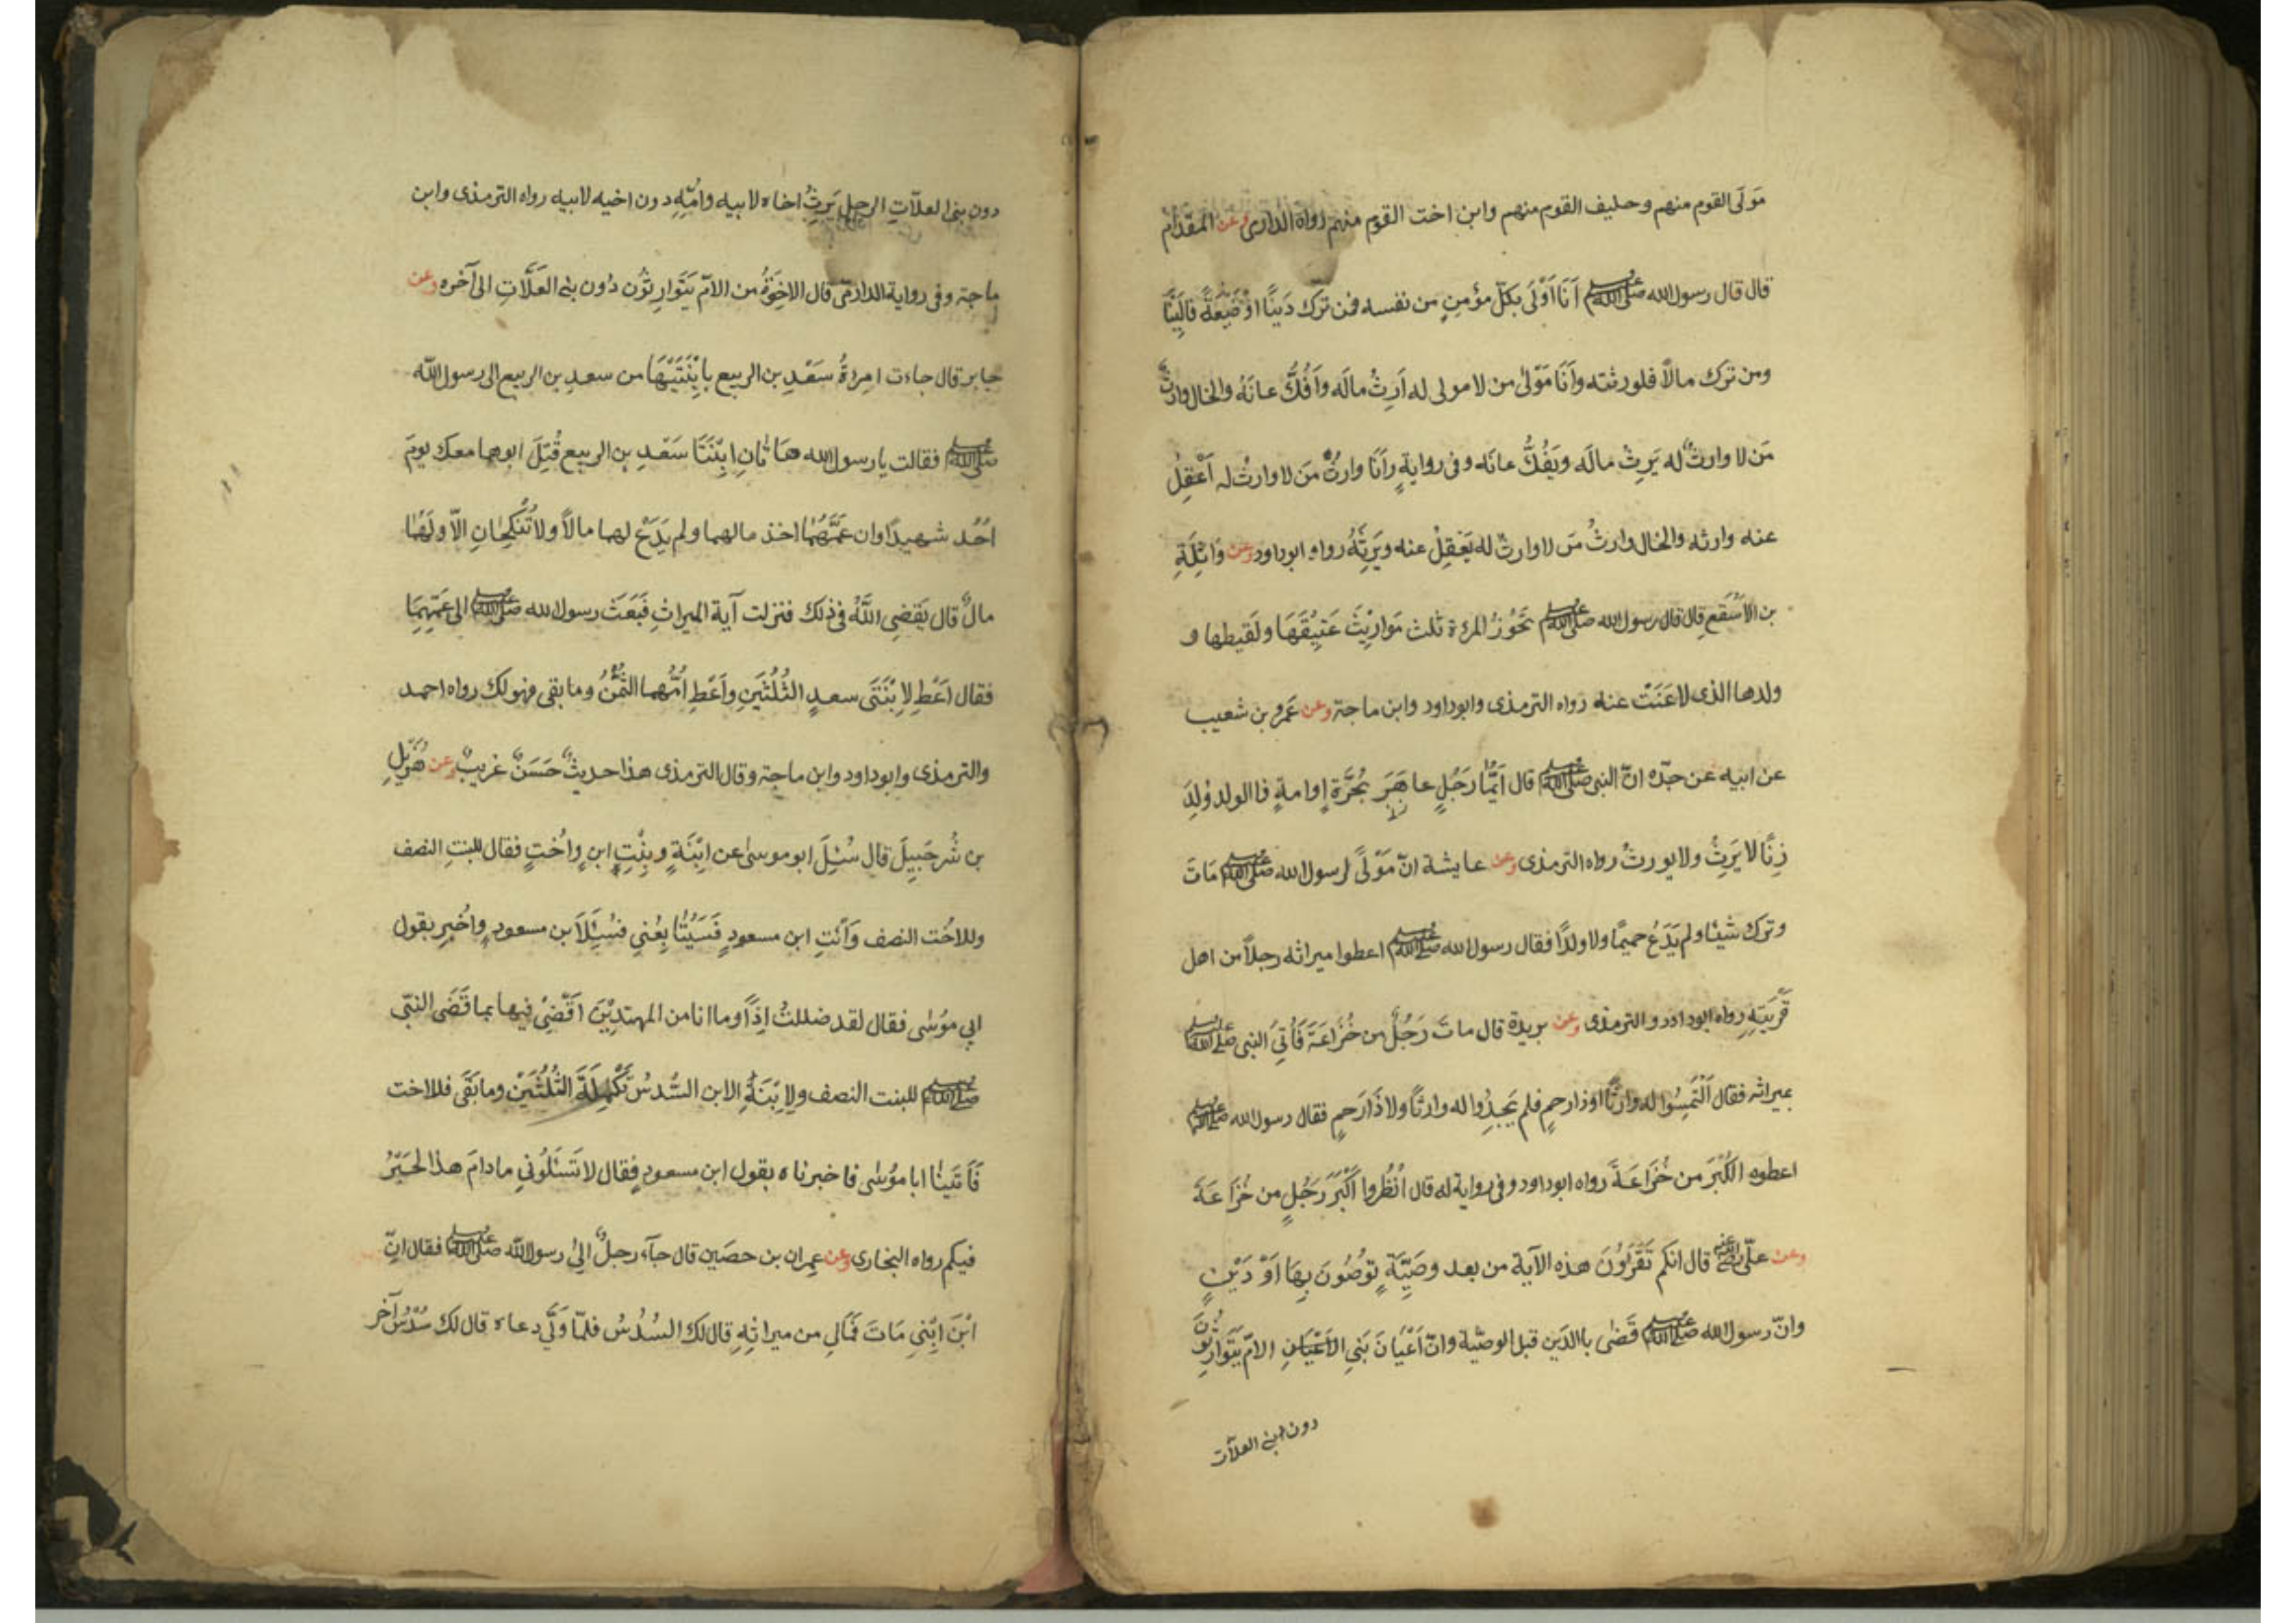 مَولَى القوم منهم وحليف القوم منهم وابن اخت القوم منهم رواه الدارمى وعن المقدام
قال قال رسول الله ﷺ اَنَا اَوْلَى بكلّ مؤمنٍ من نفسه فمن ترَك دَينًا اوْ ضَيْعَةً فاِلَيْنَا
ومن ترَك مالاً فلورثته واَنَا مَوْلىٰ من لا مولى له اَرِثُ مالَه واَفُكُّ عانَهُ والخال وارثُ
مَن لا وارثَ له يَرِثُ مالَه ويَفُكُّ عانَه وفى روايةٍ واَنَا وارثُ مَن لا وارثَ له اَعْقِلُ
عنه وارثه والخال وارثُ مَن لا وارثَ له يَعْقِلُ عنه ويَرِثُهُ رواه ابوداود وعن وَاثِلَةِ
بن الاَسْقَع قال قال رسول الله ﷺ تَحُوْزُ المرءة ثلث مَوارِيْثَ عَتِيْقَهَا ولَقيطها و
ولدها الذى لاعَنَتْ عنه رواه الترمذى وابوداود وابن ماجة وعن عَمرو بن شعيب
عن ابيه عن جدّه انّ النبى ﷺ قال اَيُّمَا رَجُلٍ عاهَرَ بحُرَّة اوامةٍ فاالولد وُلِدَ
زِنًا لا يَرِثُ ولا يورثُ رواه الترمذى وعن عايشة انّ مَوْلىً لرسول الله ﷺ مَاتَ
وترك شيئا ولم يَدَعْ حميمًا ولا ولدًا فقال رسول الله ﷺ اعطوا ميراثه رجلاً من اهل
قَرْيَتِهِ رواه ابوداود والترمذى وعن بريدة قال مات رَجُلٌ من خُزَاعَةَ فَاُتِىَ النبى ﷺ
بميراثه فقال اَلْتَمِسُوا له وارثًا اوذا رحمٍ فلم يَجِدُوا له وارثًا ولا ذَا رَحمٍ فقال رسول الله ﷺ
اعطوه الكُبْرَ من خُزَاعَةَ رواه ابوداود وفى رواية له قال اُنْظُروا اَكْبَرَ رَجُلٍ من خُزَاعَةَ
وعن علىّ رضى الله عنه قال انكم تَقْرَؤُنَ هذه الآية من بعد وصَيَّةٍ تُوْصُونَ بِهَا اَوْ دَيْنٍ
وانّ رسول الله ﷺ قَضٰى باالدَين قبل الوصيّة وانّ اَعْيَانَ بَنِى الاَعْيَانِ الامّ يَتَوَارِثُونَ
دون بنى العلاّت
دون بنى العلاّتِ الرجل يَرِثُ اخاه لابيه وامّهِ دون اخيه لابيه رواه الترمذى وابن
ماجة وفى رواية الدارمى قال الاخِوَةُ من الامّ يَتَوَارِثُوْن دُون بنى العَلاَّتِ الى آخره وعن
جابر قال جاءت امرءةُ سَعْدِ بن الربيع بابِنَتَيْهَا من سعدِ بن الربيع الى رسول الله
ﷺ فقالت يا رسول الله هَاتَانِ ابنَتَا سَعْدِ بن الربيع قُتِلَ ابوهما معك يومَ
اُحُد شهيدًا وان عَمَّهُمَا اخذ مالهما ولم يَدَعْ لهما مالاً ولا تُنْكَحَانِ الاّ ولَهُمَا
مالٌ قال يَقْضِى اللَّهُ فى ذلك فنزلت آية الميراثِ فَبَعَثَ رسول الله ﷺ الى عَمِّهِمَا
فقال اَعْطِ لابْنَتَى سعدٍ الثُلُثَيْنِ واَعْطِ اُمَّهما الثُمُنَ وما بقى فهو لك رواه احمد
والترمذى وابوداود وابن ماجة وقال الترمذى هذا حديثٌ حَسَنٌ غريبٌ وعن هُزَيْلِ
بن شُرحَبِيلَ قال سُئِلَ ابو موسىٰ عن ابِنَةٍ وبِنْتِ ابنٍ واُختٍ فقال للبنتِ النصف
وللاخُت النصف وَاْئتِ ابن مسعودٍ فَسَيُتَابِعُنىِ فسُئِلَ ابن مسعودٍ واُخْبِرَ بقول
ابى موُسٰى فقال لقد ضللتُ اِذًا وما انا من المهتدِيْنَ اقْضِىْ فيها بما قَضَى النبّى
ﷺ للبنت النصف ولاِبْنَةِ الابن السُّدسُ تَكْمِلَةَ الثُلُثَيَنْ وما بَقَى فللاخت
فَاَتَينَا ابا موُسٰى فاخبرناه بقول ابن مسعودٍ فقال لا تَسْئَلُونىِ مادامَ هذا الحَبْرُ
فيكم رواه البخارى وعن عمِران بن حصَين قال جآء رجلٌ الىٰ رسول الله ﷺ فقال انّ
ابْنَ ابِنىِ مَاتَ فَمَالىِ من ميراثِهِ قال لك السُدُسُ فلمّا ولَّى دعاه قال لك سُدُسٌ آخر